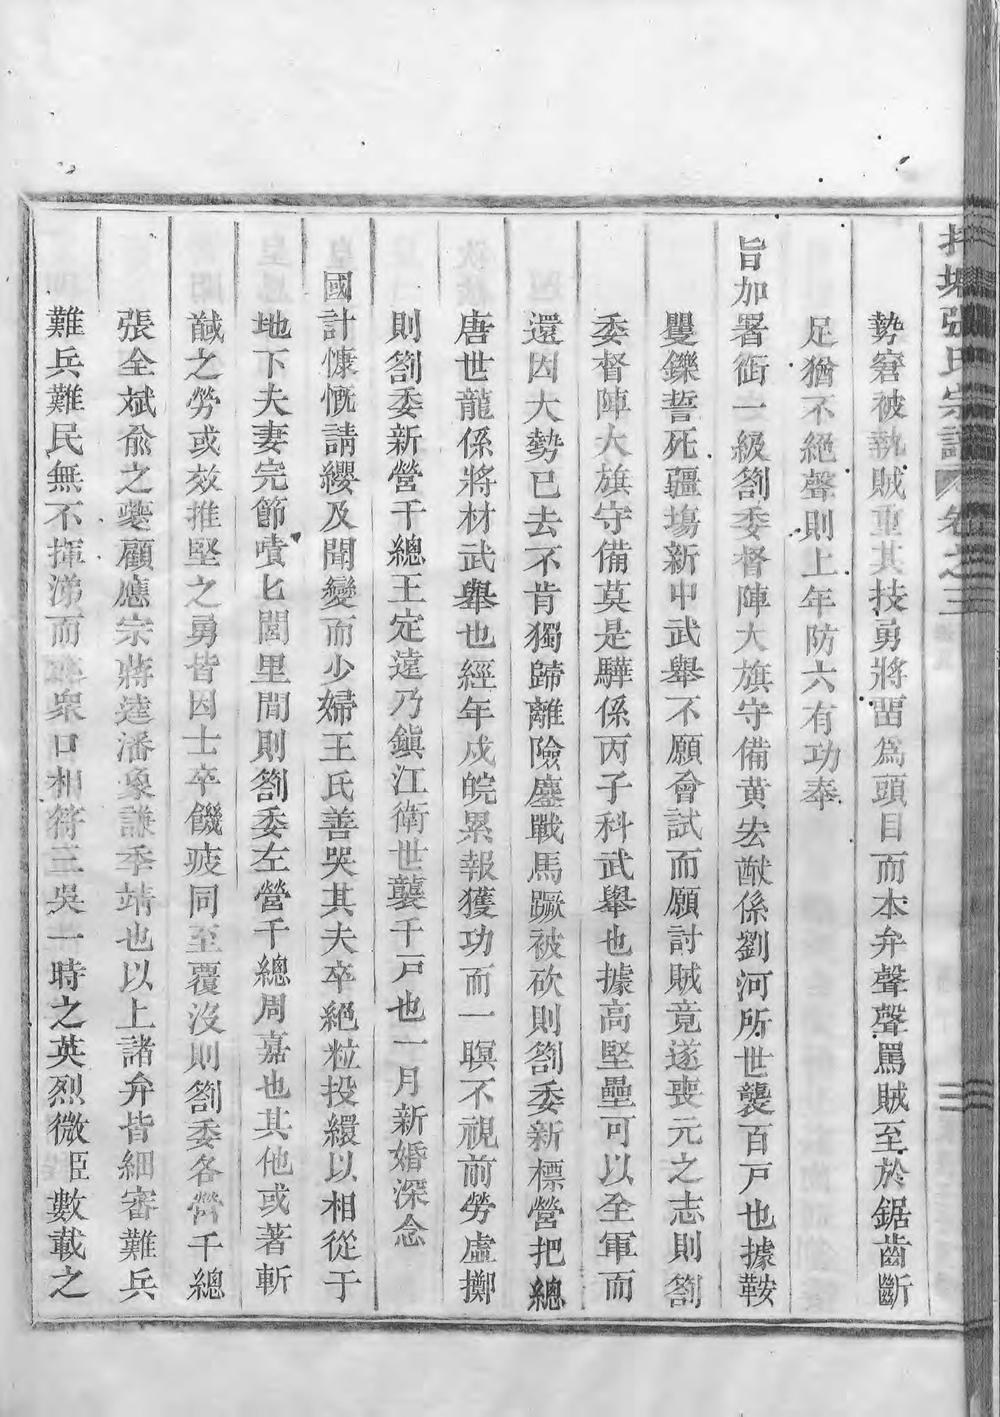 張氏宗譜 卷之三
勢窘被執賊重其技勇將畱為頭目而本弁聲聲罵賊至於鋸齒斷
足猶不絕聲則上年防六有功奉
旨加署銜一級劄委督陣大旗守備黃宏猷係劉河所世襲百戶也據鞍
矍鑠誓死疆塲新中武舉不願會試而願討賊竟遂喪元之志則劄
委督陣大旗守備莫是驊係丙子科武舉也據高堅壘可以全軍而
還因大勢已去不肯獨歸離險鏖戰馬蹶被砍則劄委新標營把總
唐世龍係將材武舉也經年戍皖累報獲功而一瞑不視前勞虛擲
則劄委新營千總王定遠乃鎮江衛世襲千戶也一月新婚深念
國計慷慨請纓及聞變而少婦王氏善哭其夫卒絕粒投繯以相從于
地下夫妻完節嘖匕閭里間則劄委左營千總周嘉也其他或著斬
馘之勞或效推堅之勇皆因士卒饑疲同至覆沒則劄委各營千總
張全斌俞之夔顧應宗蔣達潘象謙季靖也以上諸弁皆細審難兵
難兵難民無不揮涕而衆口相符三吳一時之英烈微臣數載之